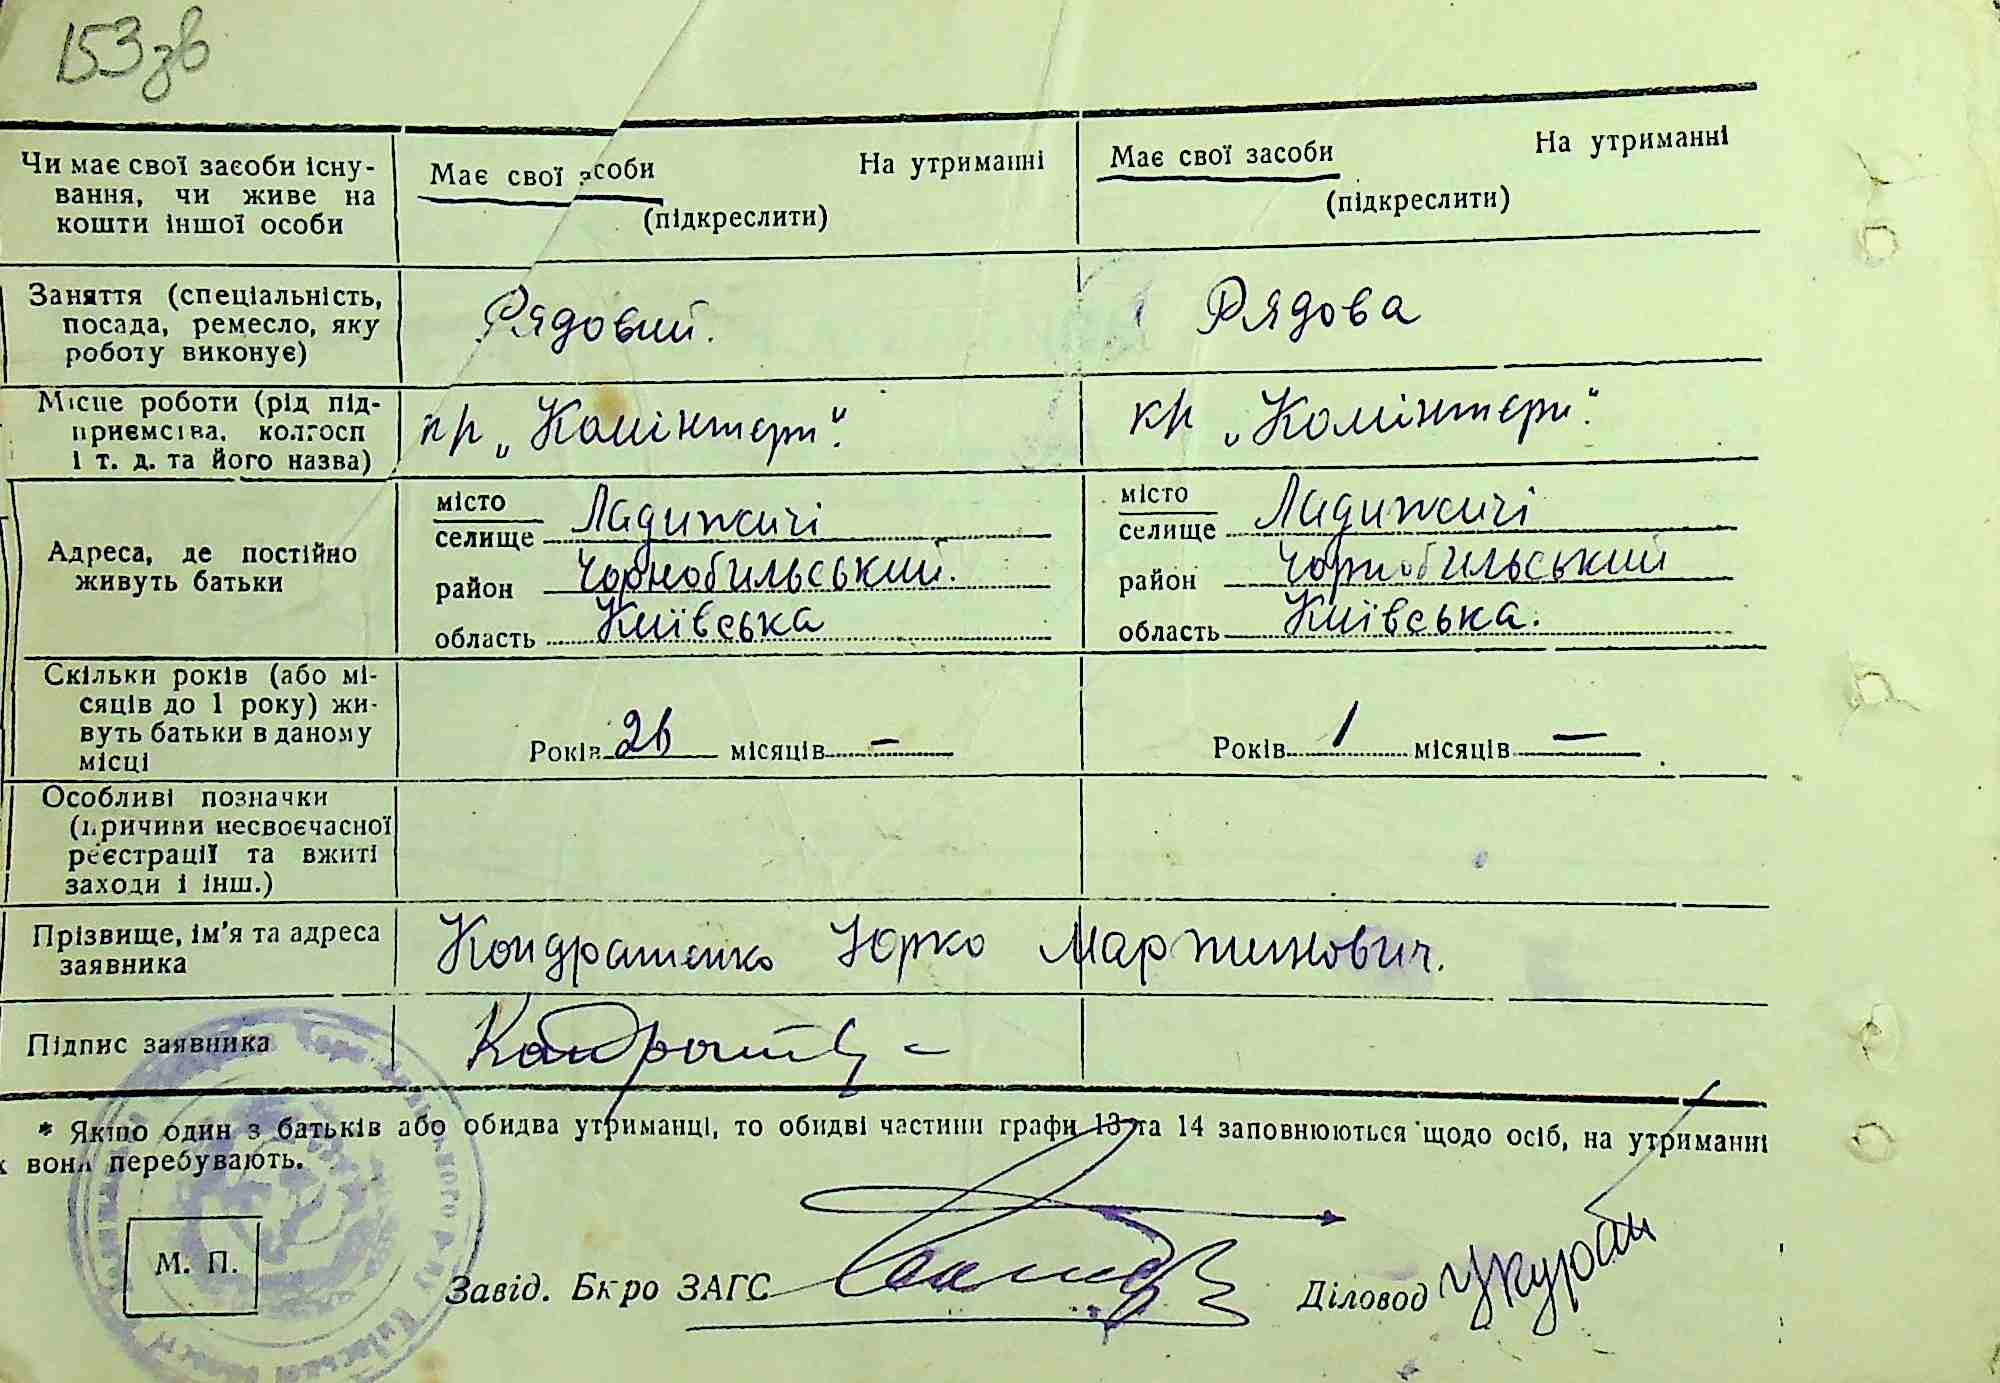 153зв
Чи має свої засоби існу-
вання, чи живе на
кошти іншої особи
Має свої засоби На утриманні
(підкреслити)
Має свої засоби На утриманні
(підкреслити)
Заняття (спеціальність,
посада, ремесло, яку
роботу виконує)
Рядовий.
Рядова
Місце роботи (рід під-
приємства, колгосп
і т. д. та його назва)
кр „Комінтерн".
кр „Комінтерн".
Адреса, де постійно
живуть батьки
місто
селище Ладижичі
район Чорнобильський.
область Київська
місто
селище Ладижичі
район Чорнобильський
область Київська.
Скільки років (або мі-
сяців до 1 року) жи-
вуть батьки в даному
місці
Років 26 місяців —
Років 1 місяців —
Особливі позначки
(причини несвоєчасної
реєстрації та вжиті
заходи і інш.)
Прізвище, ім'я та адреса
заявника
Кондратенко Юрко Мартинович.
Підпис заявника
* Якщо один з батьків або обидва утриманці, то обидві частини графи 13 та 14 заповнюються щодо осіб, на утриманні
х вони перебувають.
М. П.
Завід. Бюро ЗАГС
Діловод